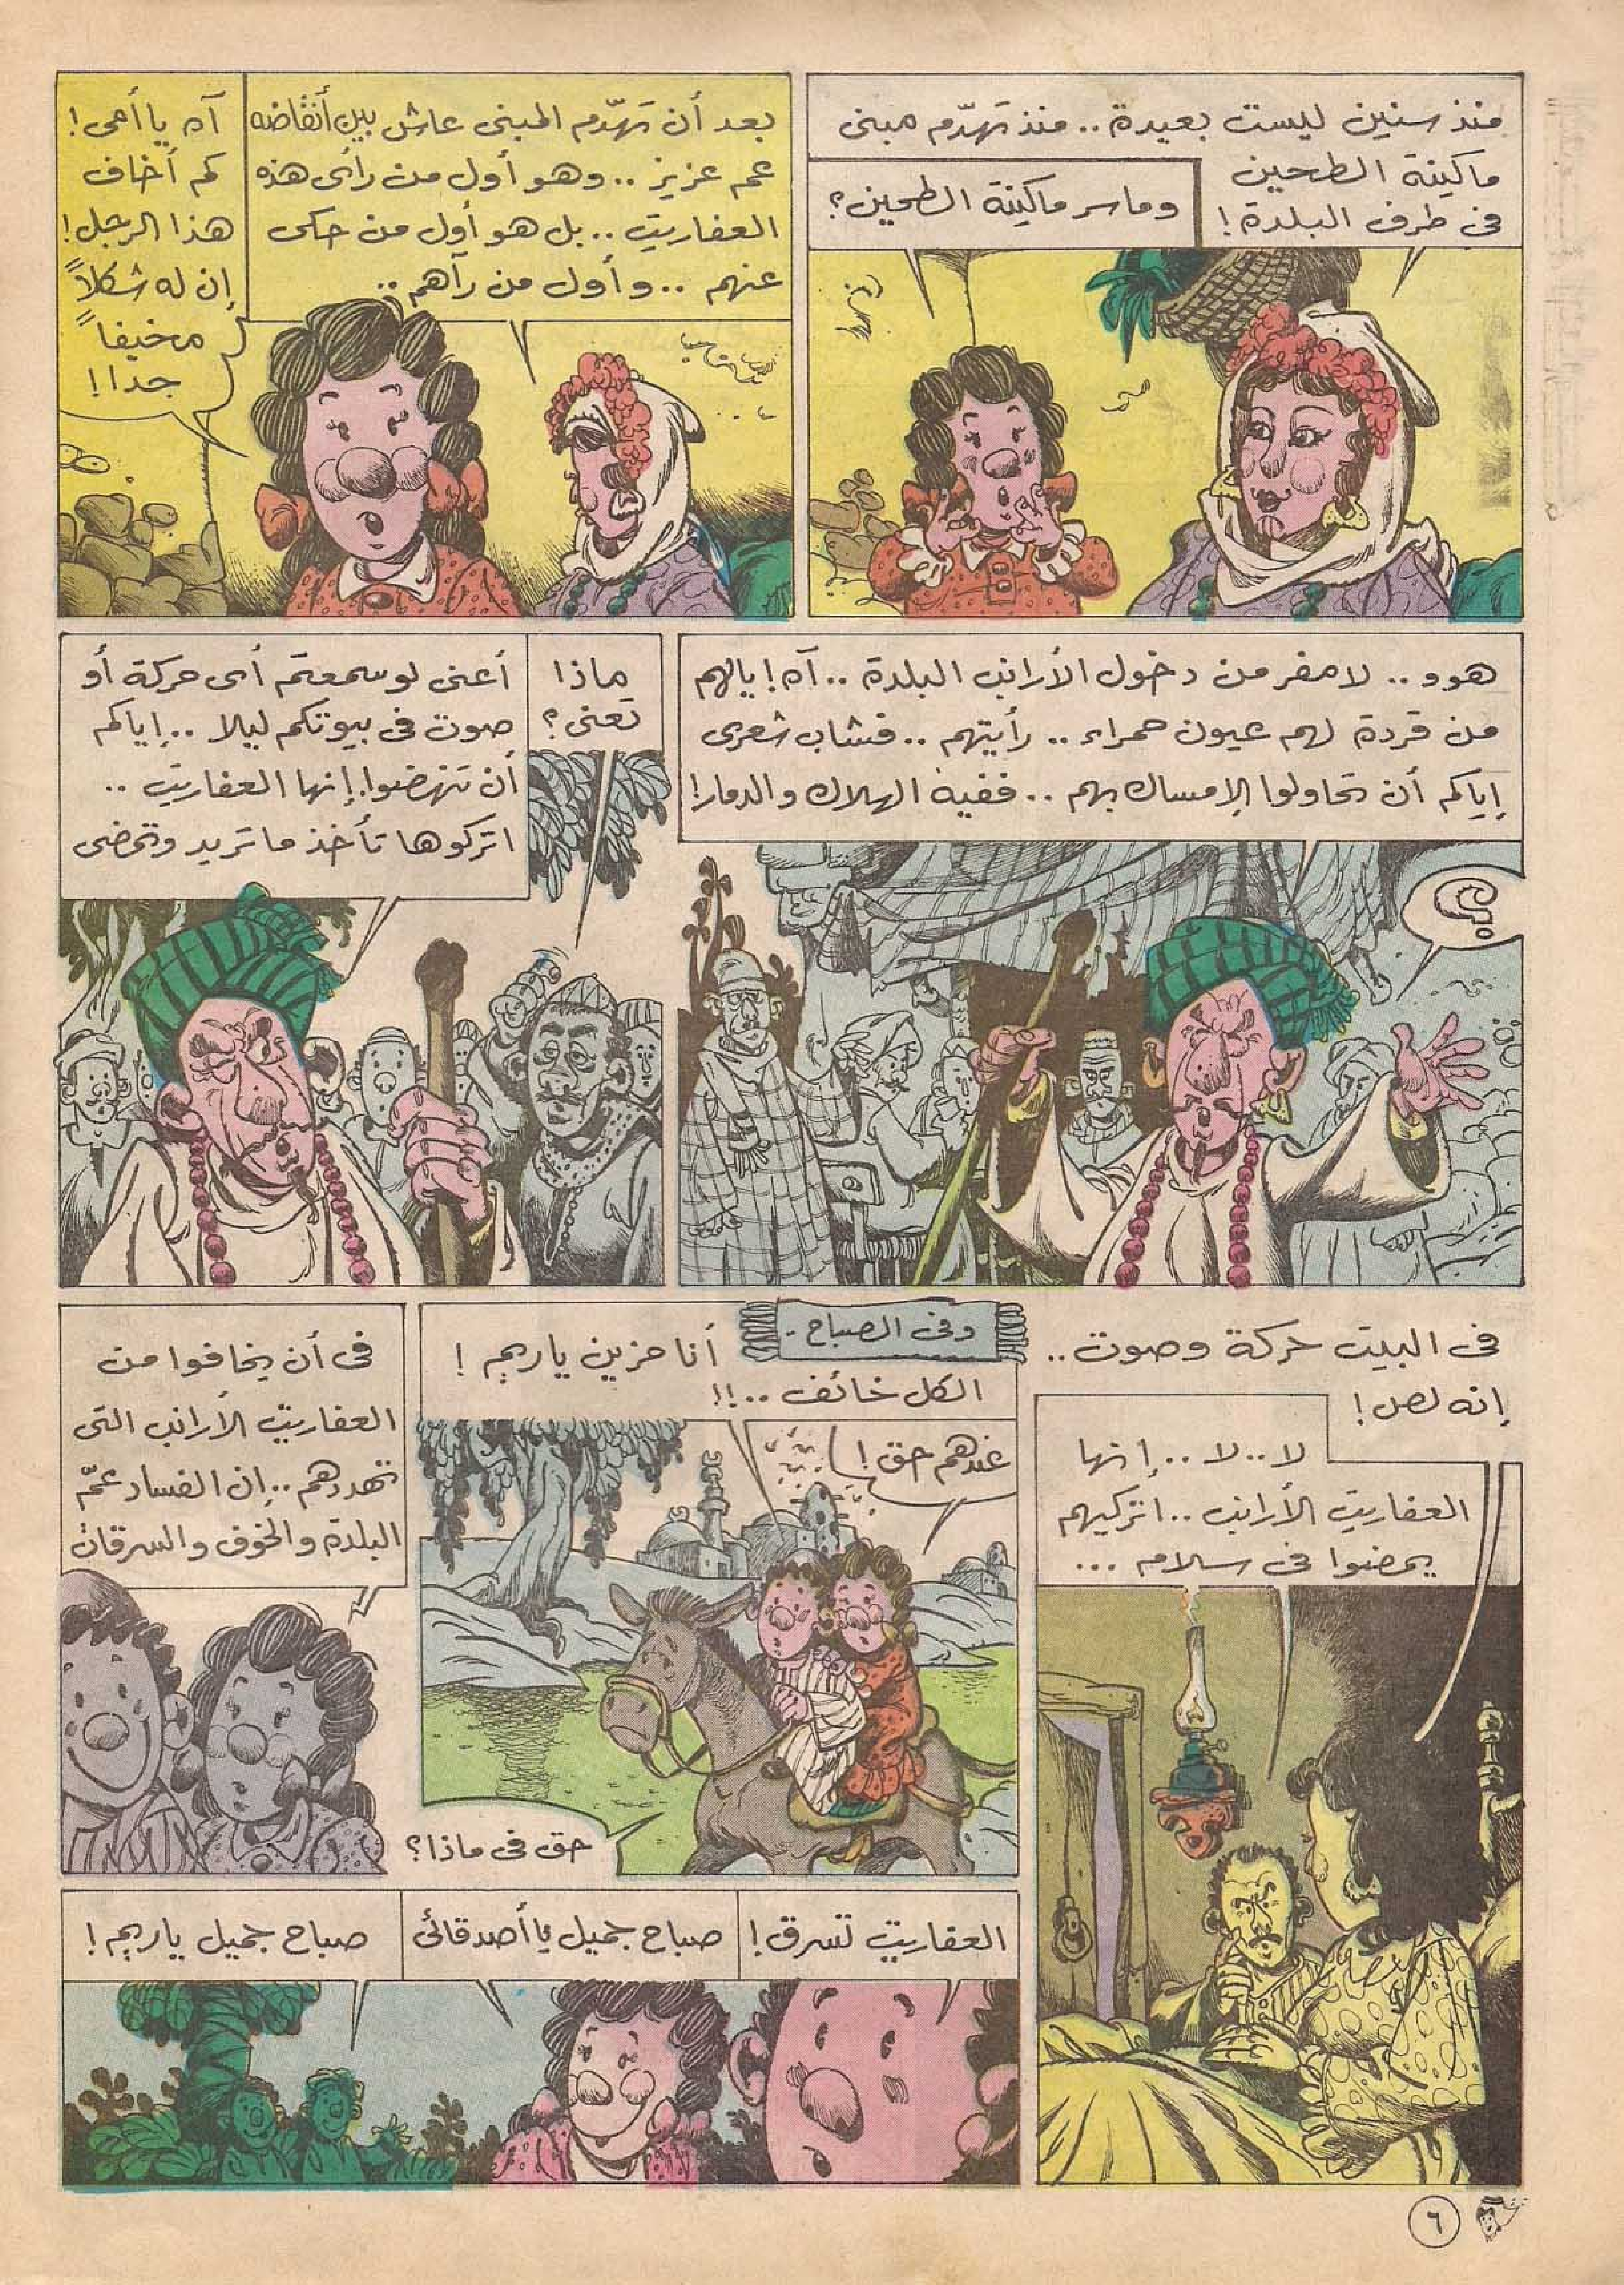 منذ سنين ليست بعيدة .. منذ تهدّم مبنى
ماكينة الطحين
فى طرف البلدة !
وما سر ماكينة الطحين ؟
بعد أن تهدّم المبنى عاش بين أنقاضه
عم عزيز .. وهو أول من رأى هذه
العفاريت .. بل هو أول من حكى
عنهم .. و أول من رآهم ..
آه يا أمى !
كم أخاف
هذا الرجل !
إن له شكلاً
مخيفاً
جدا !
هوو .. لا مفر من دخول الأرانب البلدة .. آه ! يالهم
من قردة لهم عيون حمراء .. رأيتهم .. فشاب شعرى
إياكم أن تحاولوا الإمساك بهم .. ففيه الهلاك والدمار !
؟!
ماذا
تعنى ؟
أعنى لو سمعتم أى حركة أو
صوت فى بيوتكم ليلا .. إياكم
أن تنهضوا . إنها العفاريت ..
اتركوها تأخذ ما تريد وتمضى
فى البيت حركة وصوت ..
إنه لص !
لا .. لا .. إنها
العفاريت الأرانب .. اتركيهم
يمضوا فى سلام ...
وفى الصباح ..
أنا حزين ياريم !
الكل خائف .. !!
عندهم حق !
حق فى ماذا ؟
فى أن يخافوا من
العفاريت الأرانب التى
تهددهم .. إن الفساد عمّ
البلدة والخوف والسرقات
العفاريت تسرق !
صباح جميل يا أصدقائى
صباح جميل ياريم !
٦